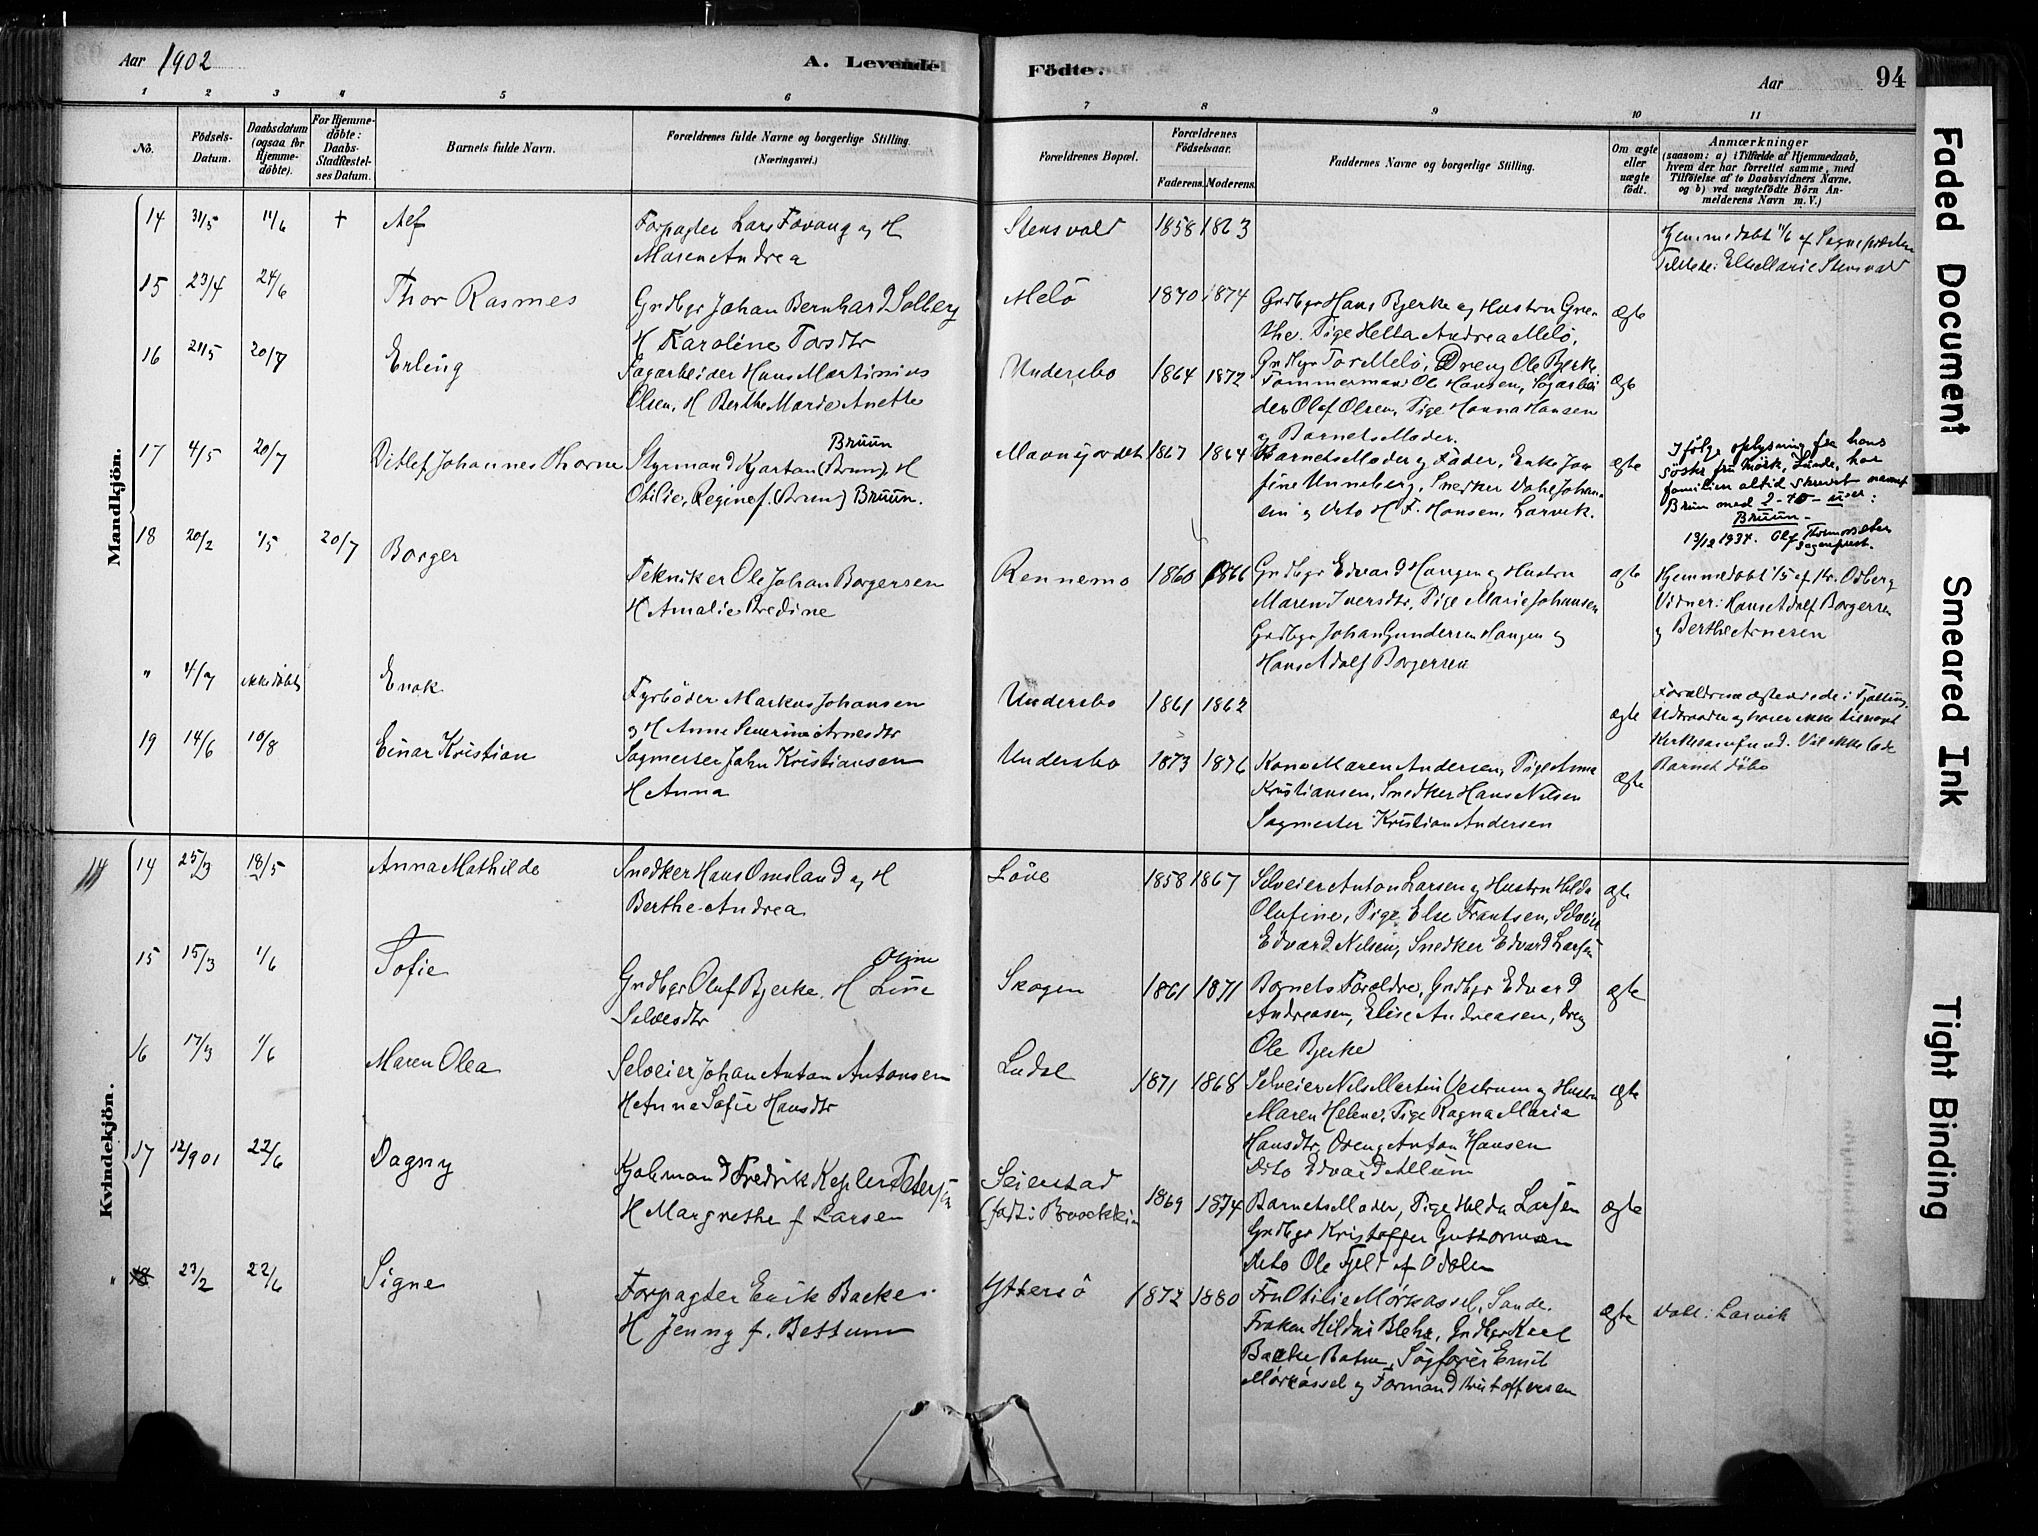 Aar 1902
A. Levende
Födte.
Aar
94
1 2 3 4 5 6 7 8 9 10 11
No.
Födsels-
Datum.
Daabsdatum
(ogsaa for
Hjemme-
döbte).
For Hjemme-
döbte:
Daabs-
Stadfæstel-
ses Datum.
Barnets fulde Navn.
Forældrenes fulde Navne og borgerlige Stilling.
(Næringsvei.)
Forældrenes Bopæl.
Forældrenes
Födselsaar.
Faderens. Moderens.
Faddernes Navne og borgerlige Stilling.
Om ægte
eller
uægte
födt.
Anmærkninger
(saasom: a) i Tilfælde af Hjemmedaab,
hvem der har forrettet samme, med
Tilföielse af to Daabsvidners Navne.
og b) ved uægtefödte Börn An-
melderens Navn m. V.)
Mandkjön.
14 31/5 11/6 + Alf
Forpagter Lars Fovang og H
Maren Andrea
Stensvold 1858 1863
Hjemmedøbt 11/6 af Sognepresten
Tilstede: Else Marie Stensvold
15 23/4 24/6 Thor Rasmes
Grdbgr Johan Bernhard Solberg
H Karoline Torsdtr
Melö 1870 1874
Grdbgr Hans Bjerke og Hustru Gre-
the. Pige Helta Andrea Melö,
Grdbgr Tor Melö, Dreng Ole Bjerke
ægte
16 21/5 20/7 Erling
Sagarbeider Hans Martinius
Olsen, H Berthe Marie Anette
Undersbo 1864 1872
Tømmermand Ole Hansen, Sagarbei
der Olaf Olsen, Pige Hanna Hansen
og Barnets Moder.
ægte
17 4/5 20/7 Ditlef Johannes Thorne
Bruun
Styrmand Kjartan (Brun) H
Otilie, Regine f. (Brun) Bruun.
1867 1864
Barnets Moder og Fader, Enke Jo
fine Unneberg, Snedker Dahl Johan-
sen og dito H F. Hansen, Larvik.
ægte
Ifölge oplysning fra hans
söster fru Mörk, Sande, har
familien altid skrevet navnet
Brun med 2 - to - u'er:
Bruun.
13/12 1934. Olf Thormodsæter
Sogneprest.
18 20/2 1/5 20/7 Borger
Tekniker Ole Johan Borgersen
H Amalie Bredine
Rennemo 1860 1866
Grdbgr Edvard Haugen og Hustru
Maren Iversdtr, Pige Marie Johansen
Grdbgr Johan Gundersen Haugen og
Hans Adolf Borgersen
ægte
Hjemmedøbt 1/5 af Kr. Odberg
Vidner: Hans Adolf Borgersen
og Berthe Arnesen
" 4/7 ikke døbt Enok
Fyrbøder Markus Johansen
og H Anne Severine Arnesdtr
Undersbo 1861 1862
ægte
Forældrene ægteviede i Tjølling.
Udtraadte og hører ikke til noget
Kirkesamfund. Vil ikke lade
Barnet døbe
19 14/6 10/8 Einar Kristian
Sagmester John Kristiansen
H Anna
Undersbo 1873 1876
Kone Maren Andersen, Pige Anna
Kristiansen, Snedker Hans Nilsen
Sagmester Kristian Andersen
ægte
Kvindekjön.
14
14 25/3 18/5 Anna Mathilde
Snedker Hans Omsland og H
Berthe Andrea
Löve 1858 1867
Selveier Anton Larsen og Hustru Helda
Olufine, Pige Else Frantsen, Selveier
Edvard Nilsen, Snedker Edvard Larsen
ægte
15 15/3 1/6 Sofie
Oline
Grdbgr Oluf Bjerke, H Line
Salvesdtr
Skogen 1861 1871
Barnets Forældre, Grdbgr Edvard
Andreasen, Elise Andreasen, Dreng
Ole Bjerke
ægte
16 17/3 1/6 Maren Olea
Selveier Johan Anton Antonsen
H Anne Sofie Hansdtr
Ludal
1871 1868
Selveier Nils Martin Vestrum og Hustru
Maren Helene, Pige Ragna Maria
Hansdtr, Dreng Anton Hansen
Dito Edvard Allum
ægte
17 12/9 01 22/6 Dagny
Kjøbmand Fredrik Kepler Petersen
H Margrethe f Larsen
Seierstad
(født i
1869 1874
Barnets Moder, Pige Helda Larsen
Grdbgr Kristoffer Guttormsen
dito Ole Fjelt af Odalen
ægte
" 18 23/2 22/6 Signe
Forpagter Erik Backe.
H Jenny f. Bettum
Yttersö
1872 1880
Fru Otilie Mørkassel, Sande.
Frøken Hildur Blehr, Grdbgr Karl
Backe Sagfører Emil
Mørkassel og Formand Kristoffersen
ægte
Larvik
Faded Document
Smeared Ink
Tight Binding